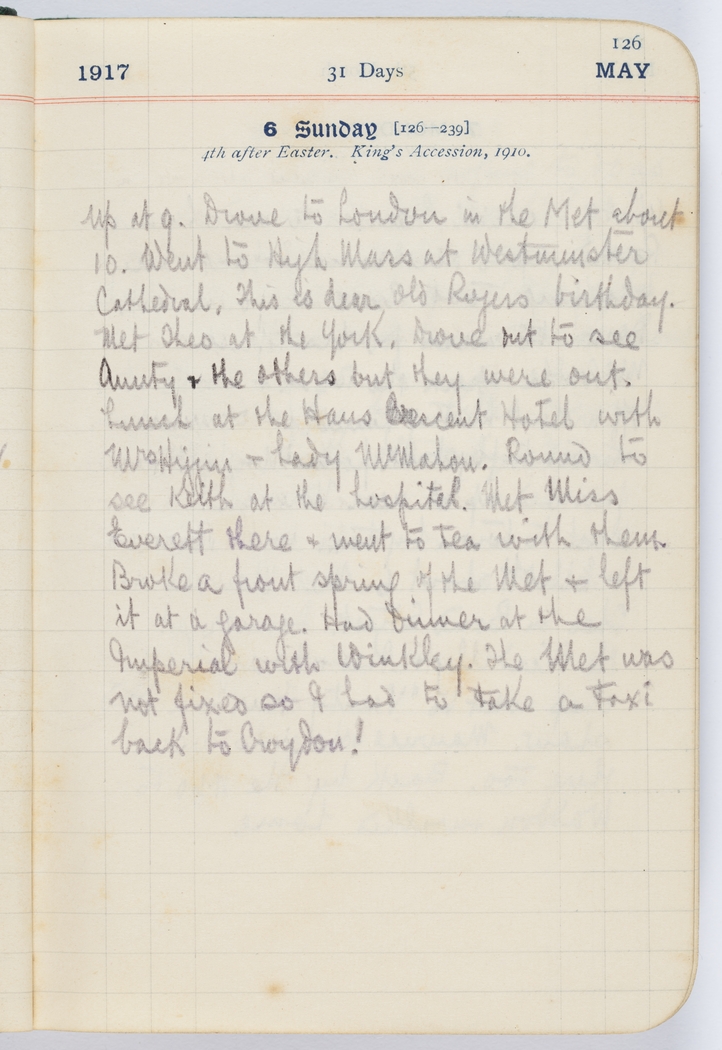 126
1917 31 Days MAY
6 Sunday [126—239]
4th after Easter. King's Accession, 1910.
Up at 9. Drove to London in the Met about
10. Went to High Mass at Westminster
Cathedral. This is dear old Rogers birthday.
Met Theo at the York. Drove out to see
Aunty & the others but they were out.
Lunch at the Hans Crescent Hotel with
Mrs Higgin & Lady McMahon. Round to
see Keith at the hospital. Met Miss
Everett there & went to tea with them
Broke a front spring of the Met & left
it at a garage. Had dinner at the
Imperial with Winkley. The Met was
not fixed so I had to take a taxi
back to Croydon!